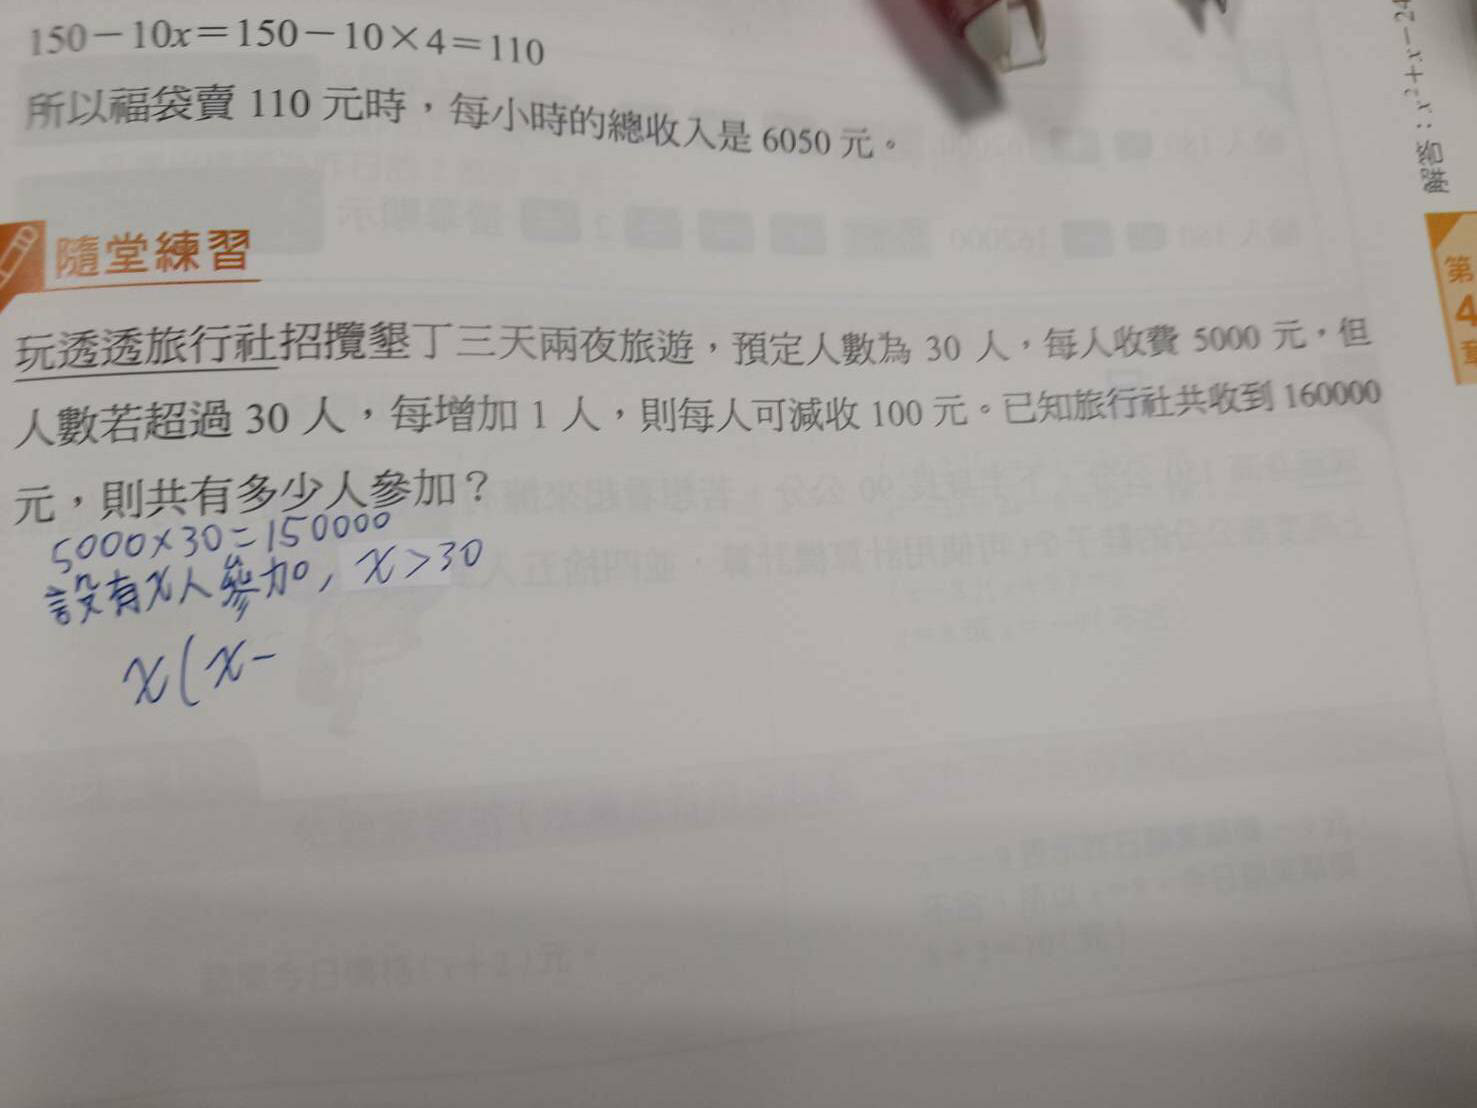 150－10x＝150－10×4＝110
所以福袋賣 110 元時，每小時的總收入是 6050 元。
隨堂練習
玩透透旅行社招攬墾丁三天兩夜旅遊，預定人數為 30 人，每人收費 5000 元，但
人數若超過 30 人，每增加 1 人，則每人可減收 100 元。已知旅行社共收到 160000
元，則共有多少人參加？
5000×30=150000
設有x人參加, x>30
x(x-
解答：x²＋x－24
第
4
章